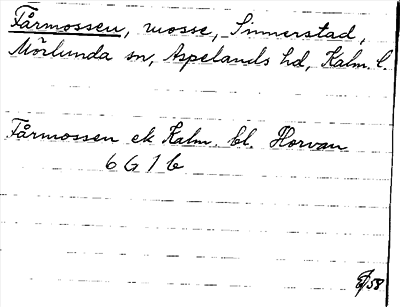 Fårmossen, mosse, Sinnerstad,
Mörlunda sn, Aspelands hd, Kalm. l.
Fårmossen ek Kalm. bl. Horvan
6 G 1 b
58